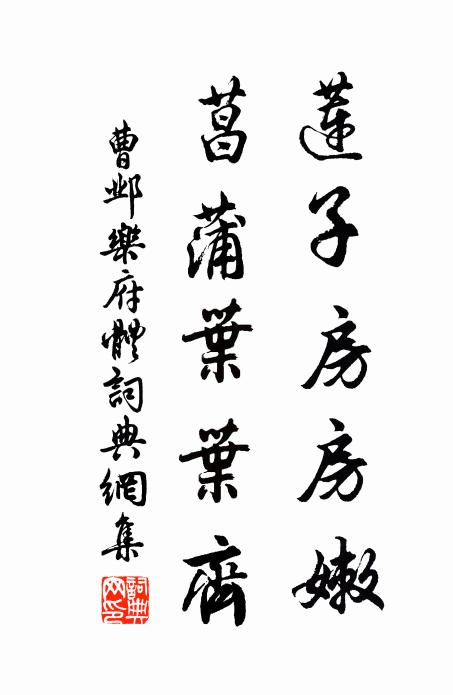 蓮子房房嫩
菖蒲葉葉齊
曹鄴樂府體詞典網集
詞典網印